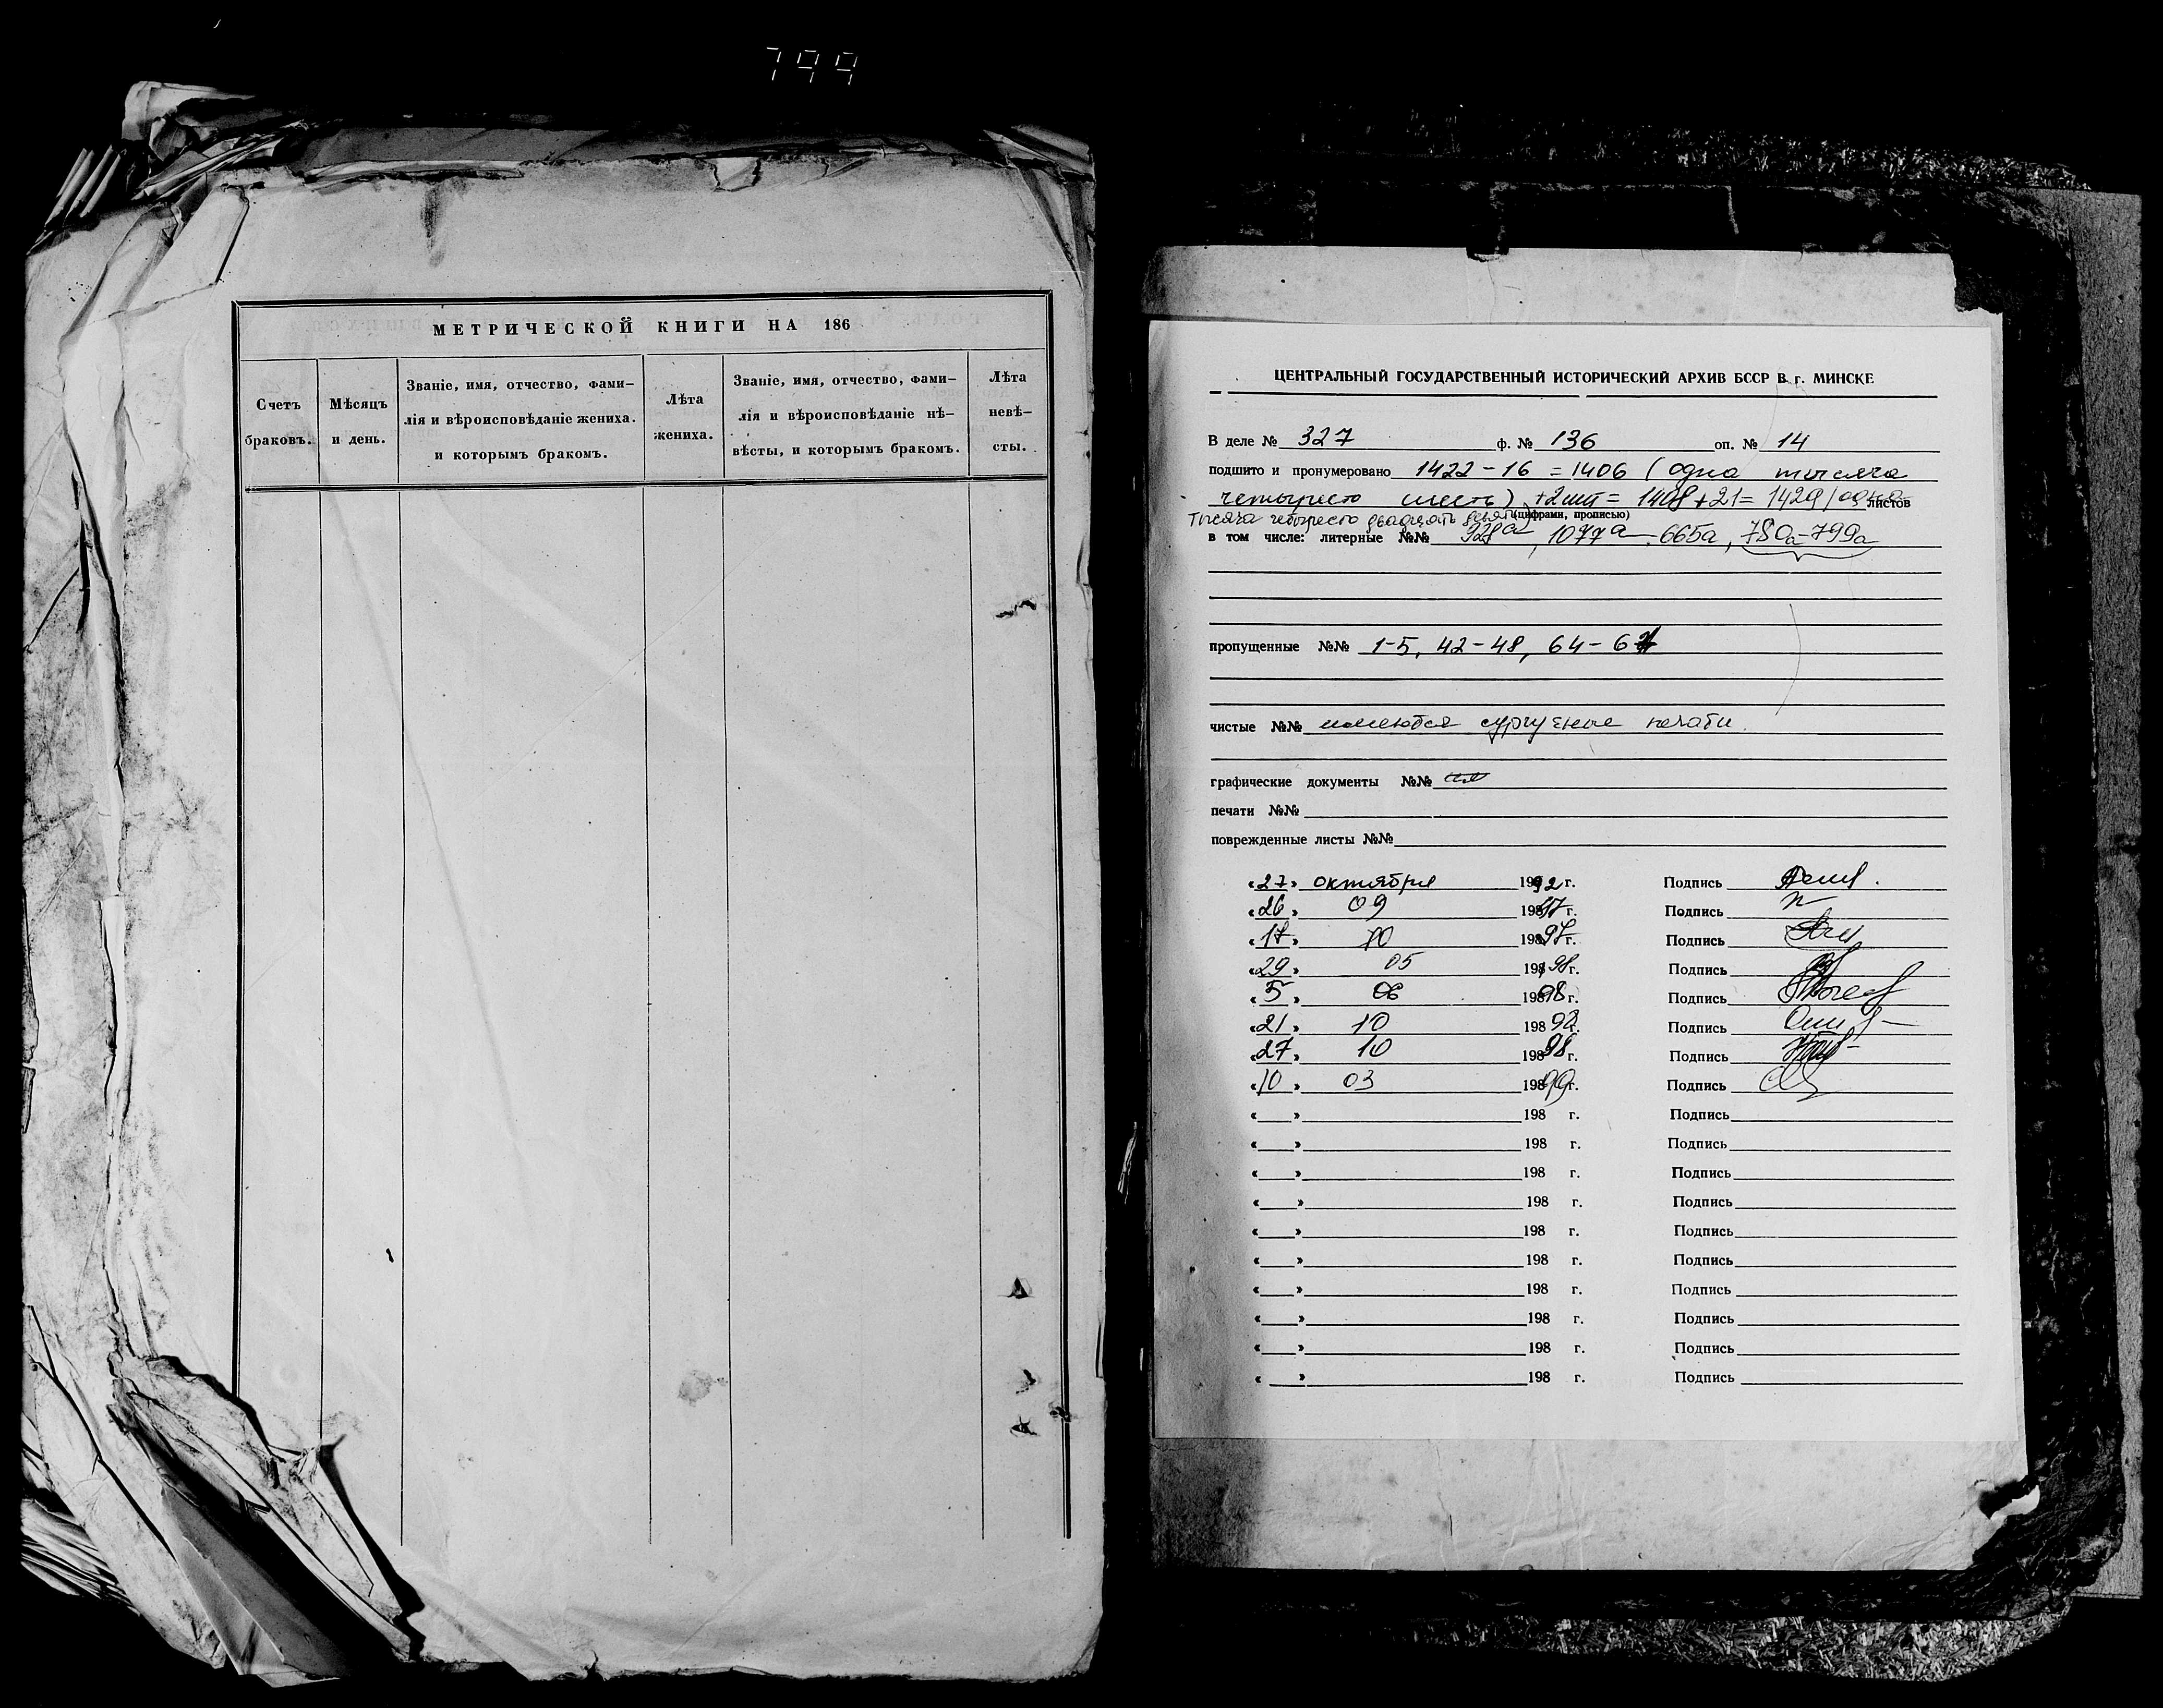 799
МЕТРИЧЕСКОЙ КНИГИ НА 186
Счетъ
браковъ.
Мѣсяцъ
и день.
Званіе, имя, отчество, фами-
лія и вѣроисповѣданіе жениха.
и которымъ бракомъ.
Лѣта
жениха.
Званіе, имя, отчество, фами-
лія и вѣроисповѣданіе нѣ-
вѣсты, и которымъ бракомъ.
Лѣта
невѣ-
сты.
ЦЕНТРАЛЬНЫЙ ГОСУДАРСТВЕННЫЙ ИСТОРИЧЕСКИЙ АРХИВ БССР В г. МИНСКЕ
В деле № 327 ф. № 136 оп. № 14
подшито и пронумеровано 1422-16 = 1406 (одна тысяча
четыреста шесть) +2 = 1408 +21 = 1429 (одна листов
(цифрами, прописью)
тысяча четыреста двадцать девять)
в том числе: литерные №№ 928а, 1077а, 665а, 780а-799а
пропущенные №№ 1-5, 42-48, 64-67
чистые №№ имеются сургучные печати.
графические документы №№
печати №№
поврежденные листы №№
«27» октября 1992 г. Подпись
«26» 09 19897 г. Подпись
«17» 10 19897 г. Подпись
«29» 05 19898 г. Подпись
«5» 06 19898 г. Подпись
«21» 10 19898 г. Подпись
«27» 10 19898 г. Подпись
«10» 03 19899 г. Подпись
« » 198 г. Подпись
« » 198 г. Подпись
« » 198 г. Подпись
« » 198 г. Подпись
« » 198 г. Подпись
« » 198 г. Подпись
« » 198 г. Подпись
« » 198 г. Подпись
« » 198 г. Подпись
« » 198 г. Подпись